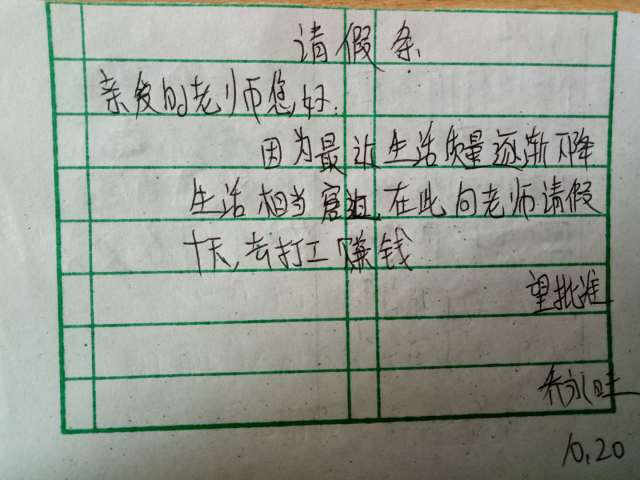 请假条
亲爱的老师您好:
因为最近生活质量逐渐下降
生活相当窘迫,在此向老师请假
十天,去打工赚钱
望批准
10.20